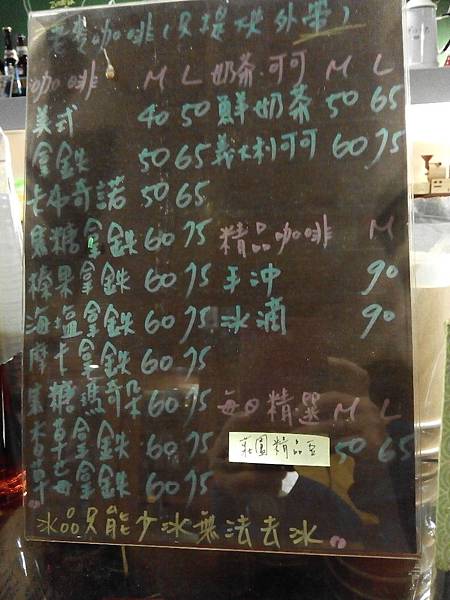 老麥咖啡(只提供外帶)
咖啡 M L
美式 40 50
拿鉄 50 65
卡布奇諾 50 65
焦糖拿鉄 60 75
榛果拿鉄 60 75
海塩拿鉄 60 75
摩卡拿鉄 60 75
焦糖瑪奇朵 60 75
香草拿鉄 60 75
草莓拿鉄 60 75
奶茶.可可 M L
鮮奶茶 50 65
義大利可可 60 75
精品咖啡 M
手冲 90
冰滴 90
每日精選 M L
莊園精品豆 50 65
冰品只能少冰無法去冰